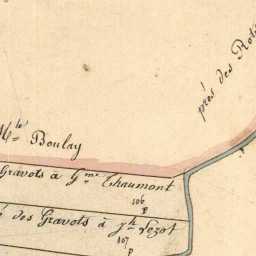 prés des
Mle Boulay
Gravots à Gme Chaumont
106
p
des Gravots à Jh Vezot
107
p